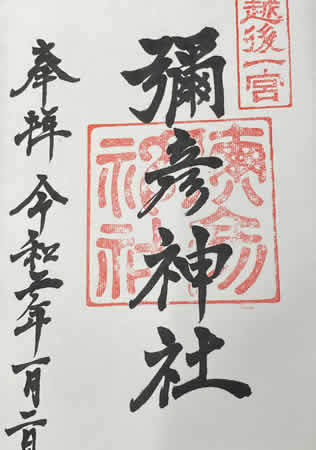 越後一宮
彌彦神社
奉拝 令和二年一月二日